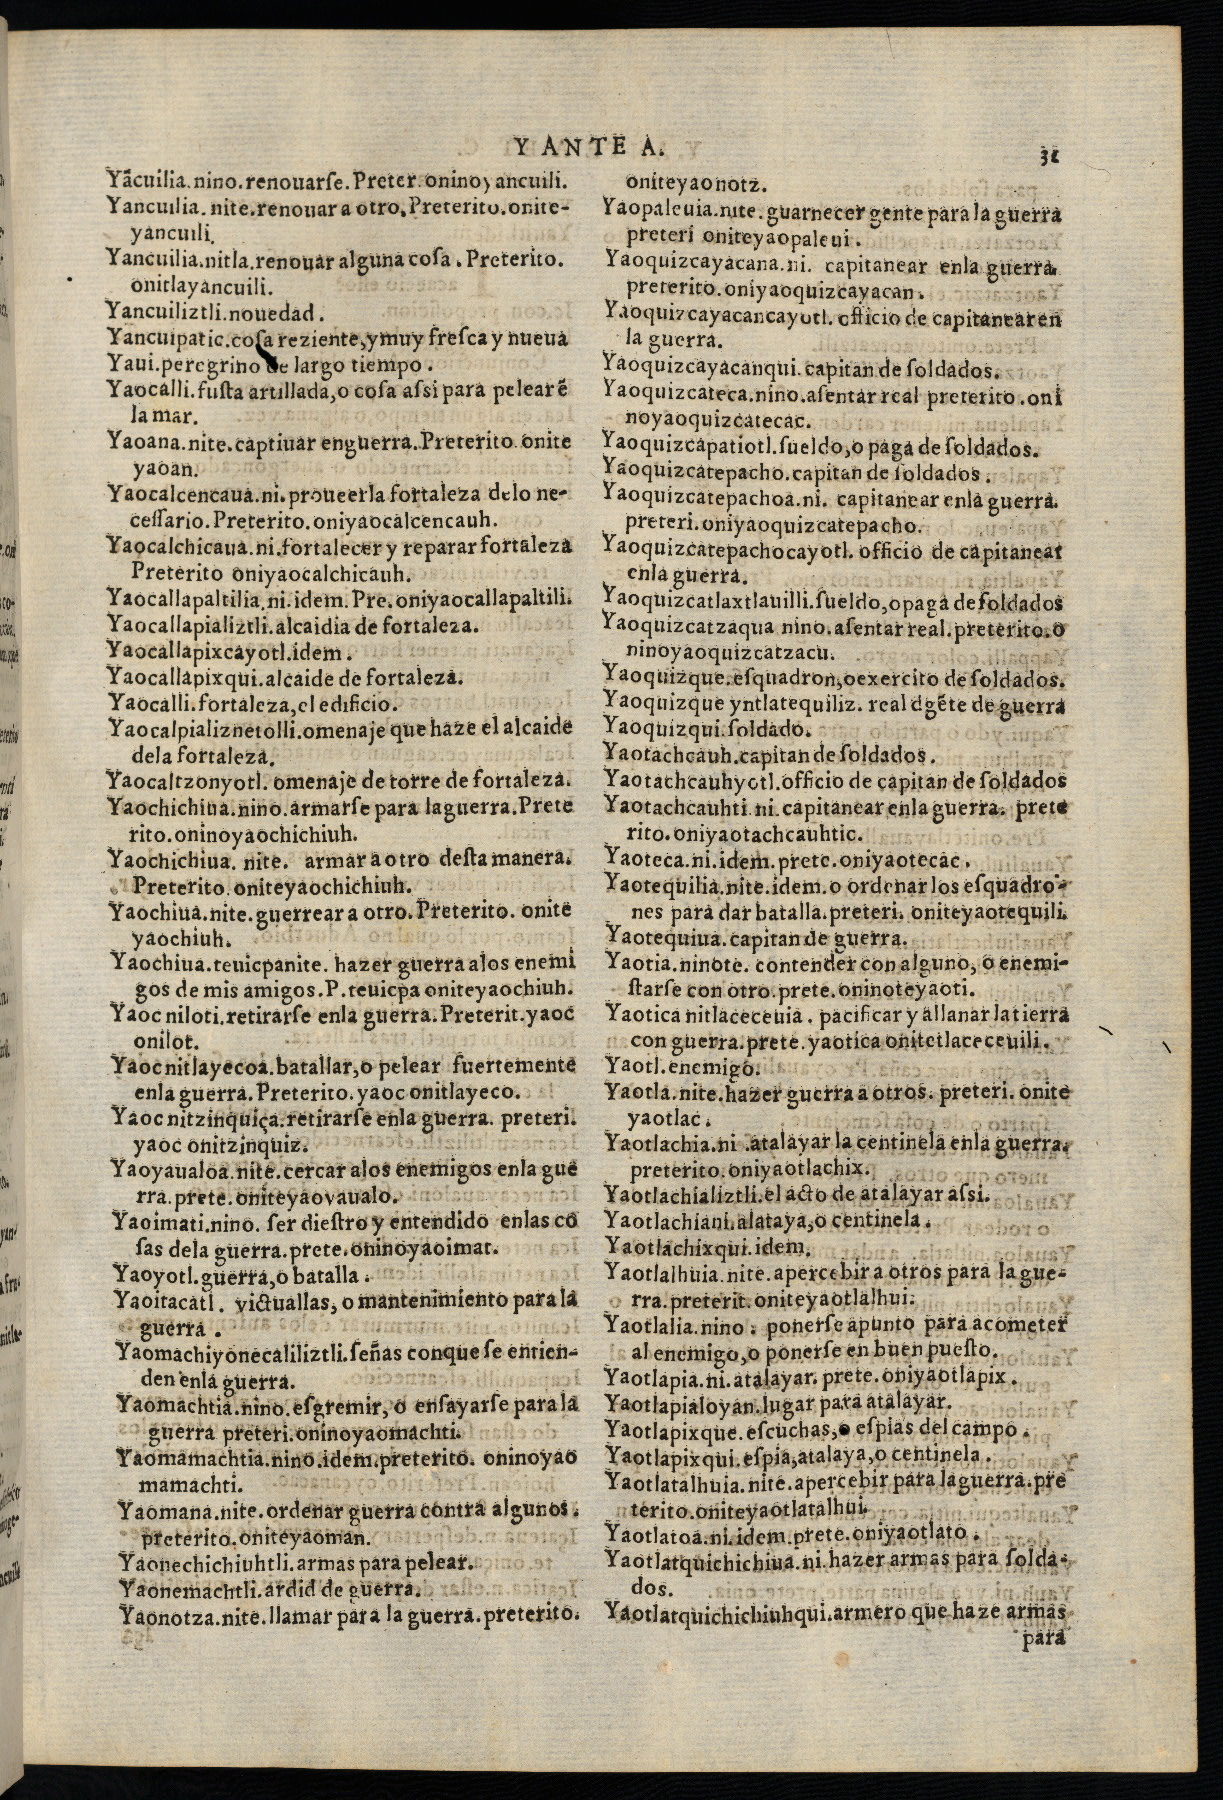 Y ANTE A.
31
Yācuilia.nino.renouarſe.Preter.oninoyancuili.
Yancuilia.nite.renouar a otro.Preterito.onite-
yancuili.
Yancuilia.nitla.renouar alguna coſa.Preterito.
onitlayancuili.
Yancuiliztli.nouedad.
Yancuipatic.coſa reziente,y muy freſca y nueua
Yaui.peregrino de largo tiempo.
Yaocalli.fuſta artillada,o coſa aſsi para pelear ē
la mar.
Yaoana.nite.captiuar enguerra.Preterito.onite
yaoan.
Yaocalcencaua.ni.proueerla fortaleza delo ne-
ceſſario.Preterito.oniyaocalcencauh.
Yaocalchicaua.ni.fortalecer y reparar fortaleza
Preterito oniyaocalchicauh.
Yaocallapaltilia.ni.idem.Pre.oniyaocallapaltili.
Yaocallapializtli.alcaidia de fortaleza.
Yaocallapixcayotl.idem.
Yaocallapixqui.alcaide de fortaleza.
Yaocalli.fortaleza,el edificio.
Yaocalpializnetolli.omenaje que haze el alcaide
dela fortaleza.
Yaocaltzonyotl.omenaje de torre de fortaleza.
Yaochichiua.nino.armarſe para laguerra.Prete
rito.oninoyaochichiuh.
Yaochichiua.nite. armar a otro deſta manera.
Preterito.oniteyaochichiuh.
Yaochiua.nite.guerrear a otro.Preterito.onite
yaochiuh.
Yaochiua.teuicpanite. hazer guerra alos enemi
gos de mis amigos.P.teuicpa oniteyaochiuh.
Yaoc niloti.retirarſe enla guerra.Preterit.yaoc
onilot.
Yaoc nitlayecoa.batallar,o pelear fuertemente
enla guerra.Preterito.yaoc onitlayeco.
Yaoc nitzinquiça.retirarſe enla guerra. preteri.
yaoc onitzinquiz.
Yaoyaualoa.nite.cercar alos enemigos enla gue
rra.prete.oniteyaoyaualo.
Yaoimati.nino. ſer dieſtro y entendido enlas co
ſas dela guerra.prete.oninoyaoimat.
Yaoyotl.guerra,o batalla.
Yaoitacatl. victuallas,o mantenimiento para la
guerra.
Yaomachiyonecaliliztli.ſeñas conque ſe entien-
den enla guerra.
Yaomachtia.nino.eſgremir, o enſayarſe para la
guerra preteri.oninoyaomachti.
Yaomamachtia.nino.idem.preterito. oninoyao
mamachti.
Yaomana.nite.ordenar guerra contra algunos.
preterito.oniteyaoman.
Yaonechichiuhtli.armas para pelear.
Yaonemachtli.ardid de guerra.
Yaonotza.nite.llamar para la guerra.preterito.
oniteyaonotz.
Yaopaleuia.nite.guarnecer gente para la guerra
preteri oniteyaopaleui.
Yaoquizcayacana.ni. capitanear enla guerra.
preterito.oniyaoquizcayacan.
Yaoquizcayacancayotl.officio de capitanear en
la guerra.
Yaoquizcayacanqui.capitan de ſoldados.
Yaoquizcateca.nino.aſentar real preterito.oni
noyaoquizcatecac.
Yaoquizcapatiotl.ſueldo,o paga de ſoldados.
Yaoquizcatepacho.capitan de ſoldados.
Yaoquizcatepachoa.ni. capitanear enla guerra.
preteri.oniyaoquizcatepacho.
Yaoquizcatepachocayotl. officio de capitanear
enla guerra.
Yaoquizcatlaxtlauilli.ſueldo,opaga deſoldados
Yaoquizcatzaqua nino.aſentar real.preterito.o
ninoyaoquizcatzacu.
Yaoquizque.eſquadron,oexercito de ſoldados.
Yaoquizque yntlatequiliz. real dgēte de guerra
Yaoquizqui.ſoldado.
Yaotachcauh.capitan de ſoldados.
Yaotachcauhyotl.officio de capitan de ſoldados
Yaotachcauhti.ni.capitanear enla guerra. prete
rito.oniyaotachcauhtic.
Yaoteca.ni.idem.prete.oniyaotecac.
Yaotequilia.nite.idem.o ordenar los eſquadro-
nes para dar batalla.preteri. oniteyaotequili.
Yaotequiua.capitan de guerra.
Yaotia.ninote. contender con alguno, o enemi-
ſtarſe con otro.prete.oninoteyaoti.
Yaotica nitlaceceuia. pacificar y allanar la tierra
con guerra.prete.yaotica onitetlaceceuili.
Yaotl.enemigo.
Yaotla.nite.hazer guerra a otros. preteri. onite
yaotlac.
Yaotlachia.ni.atalayar la centinela enla guerra.
preterito.oniyaotlachix.
Yaotlachializtli.el acto de atalayar aſsi.
Yaotlachiani.alataya,o centinela.
Yaotlachixqui.idem.
Yaotlalhuia.nite.apercebir a otros para la gue-
rra.preterit.oniteyaotlalhui.
Yaotlalia.nino. ponerſe apunto para acometer
al enemigo,o ponerſe en buen pueſto.
Yaotlapia.ni.atalayar. prete.oniyaotlapix.
Yaotlapialoyan.lugar para atalayar.
Yaotlapixque.eſcuchas,o eſpias del campo.
Yaotlapixqui.eſpia,atalaya,o centinela.
Yaotlatalhuia.nite.apercebir para laguerra.pre
terito.oniteyaotlatalhui.
Yaotlatoa.ni.idem.prete.oniyaotlato.
Yaotlatquichichiua.ni.hazer armas para ſolda-
dos.
Yaotlatquichichiuhqui.armero que haze armas
para